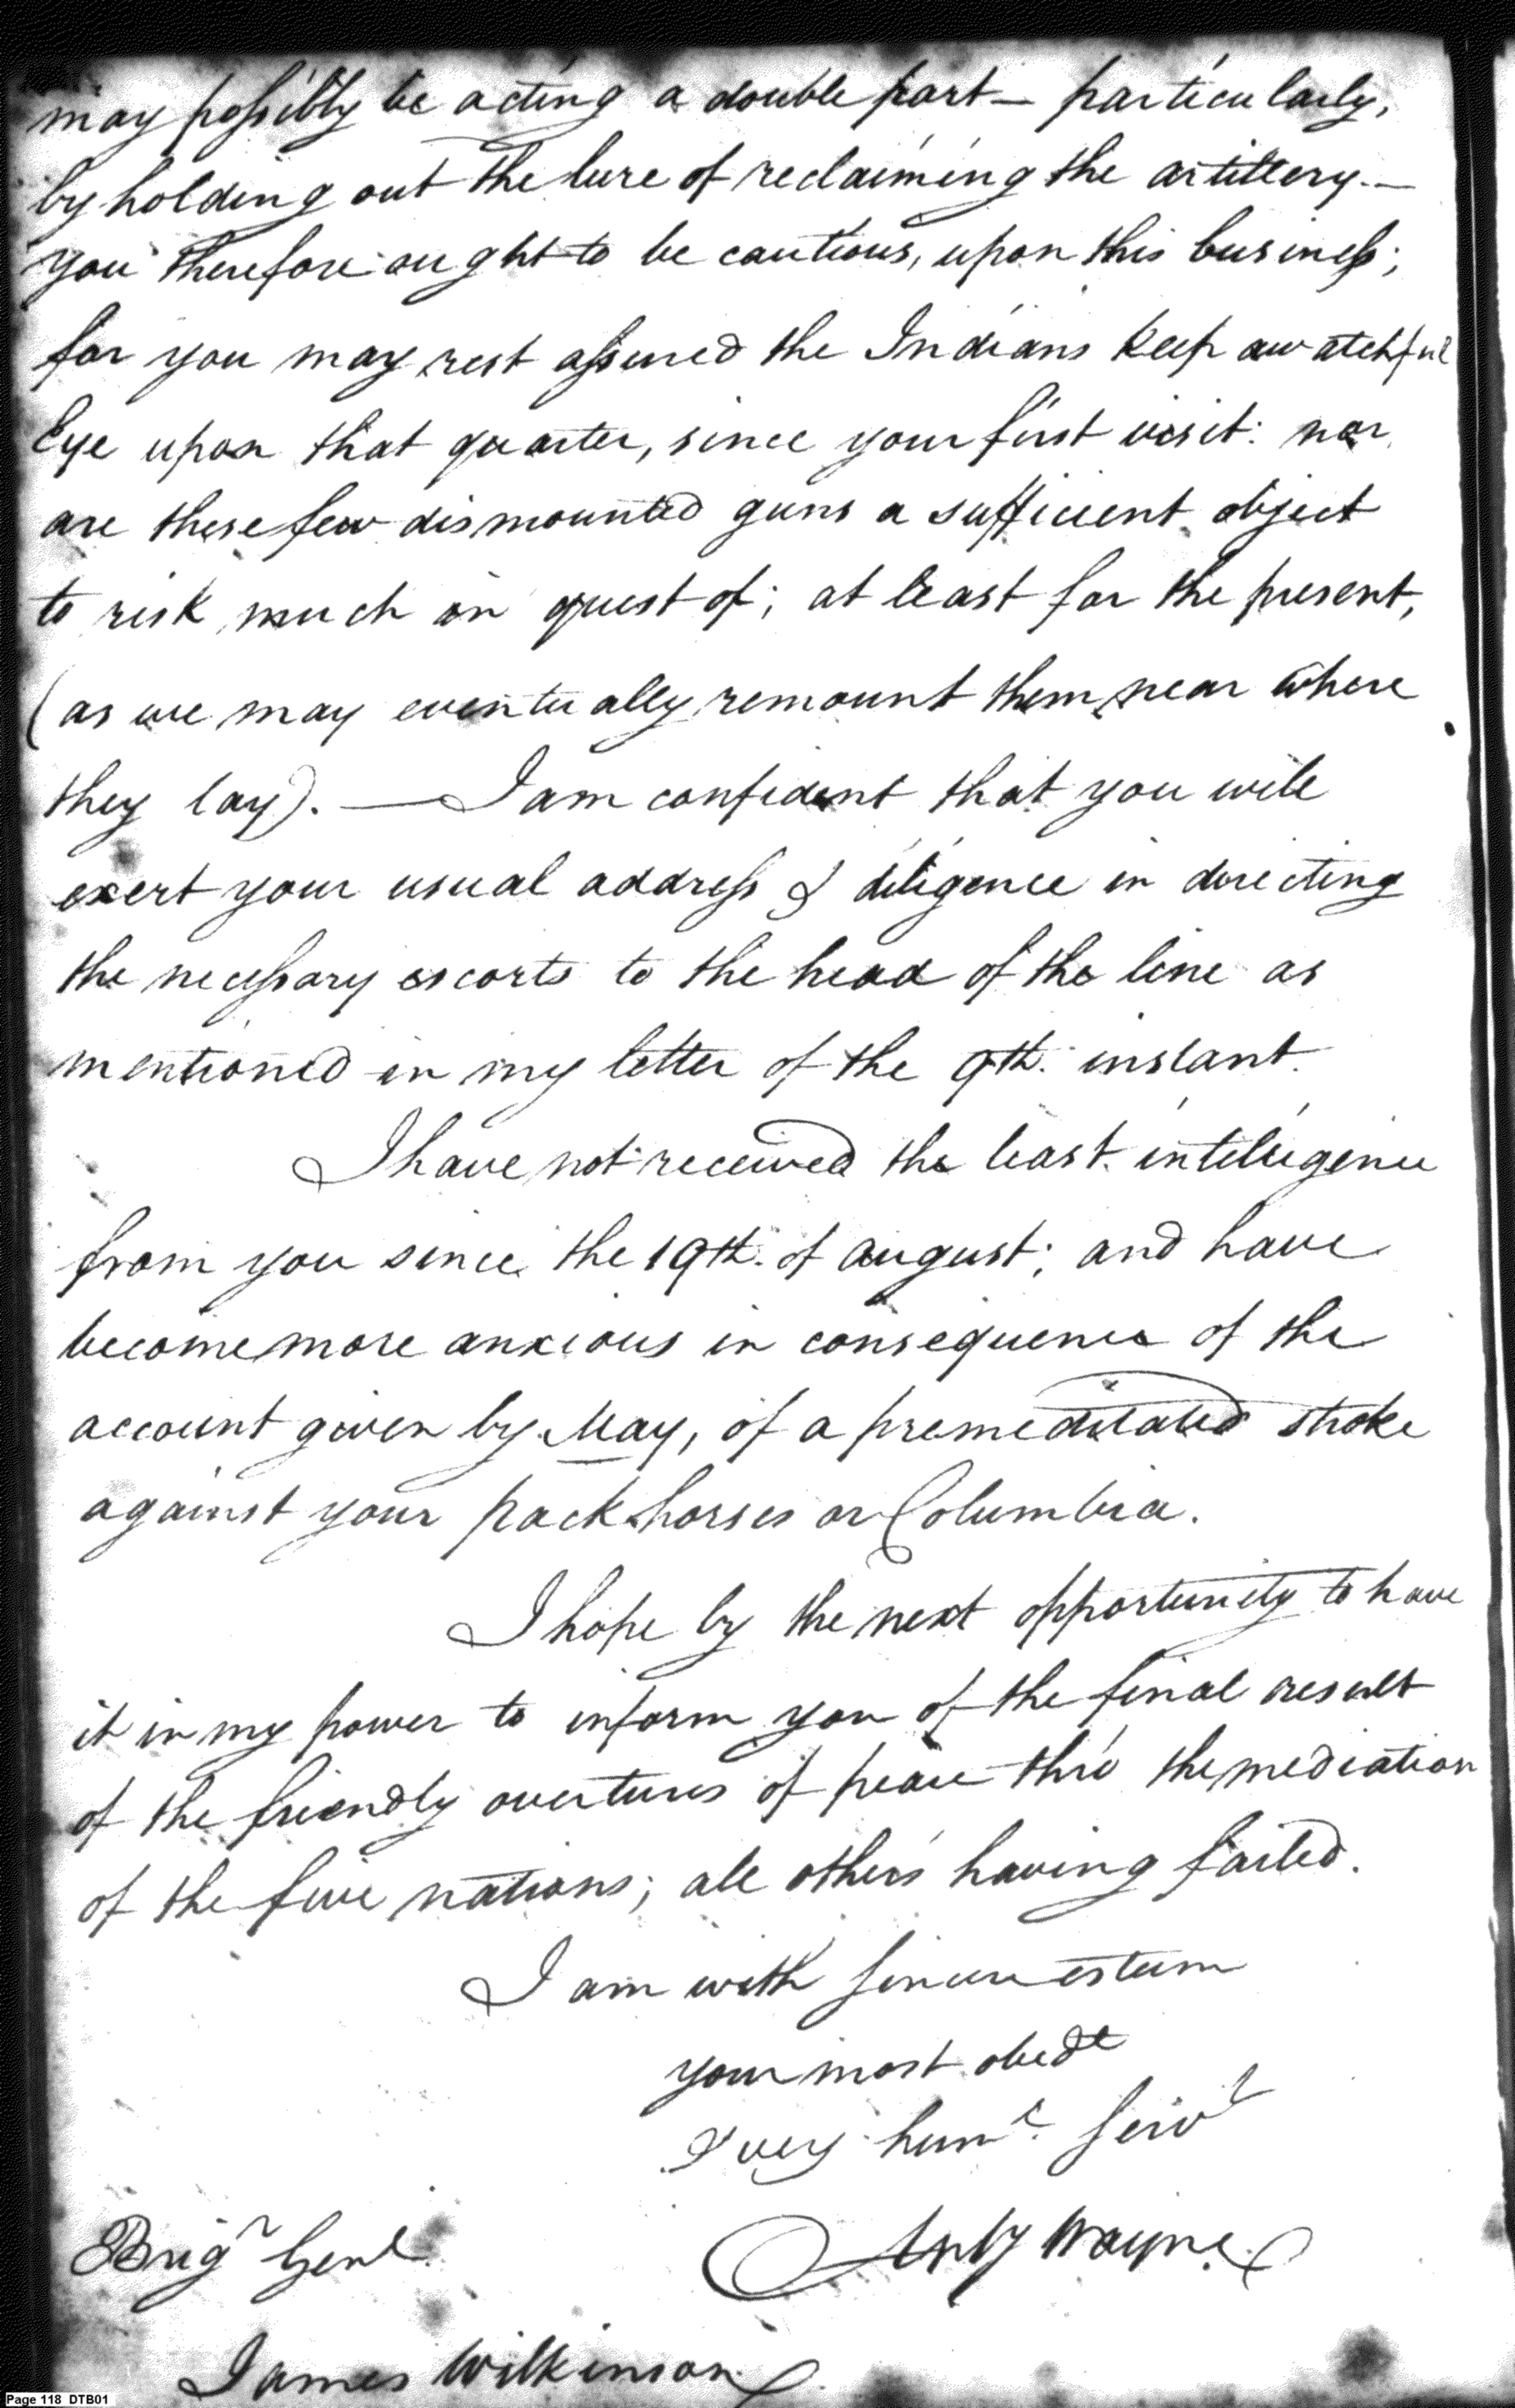 may possibly be acting a double part — particularly,
by holding out the lure of reclaiming the artillery. —
you therefore ought to be cautious, upon this business;
for you may rest assured the Indians keep a watchful
Eye upon that quarter, since your first visit: nor
are these few dismounted guns a sufficient object
to risk much in quest of; at least for the present,
(as we may eventually remount them near where
they lay). — I am confident that you will
exert your usual address & diligence in directing
the necessary escorts to the head of the line as
mentioned in my letter of the 9th. instant.
I have not received the least intelligence
from you since the 19th. of august; and have
become more anxious in consequence of the
account given by May, of a premeditated stroke
against your pack horses or Columbia.
I hope by the next opportunity to have
it in my power to inform you of the final result
of the friendly overtures of peace thro' the mediation
of the five nations; all others having failed.
I am with sincere esteem
your most obedt
& very huml. Servt
Brigr Genl. Anty Wayne
James Wilkinson
Page 118 DTB01